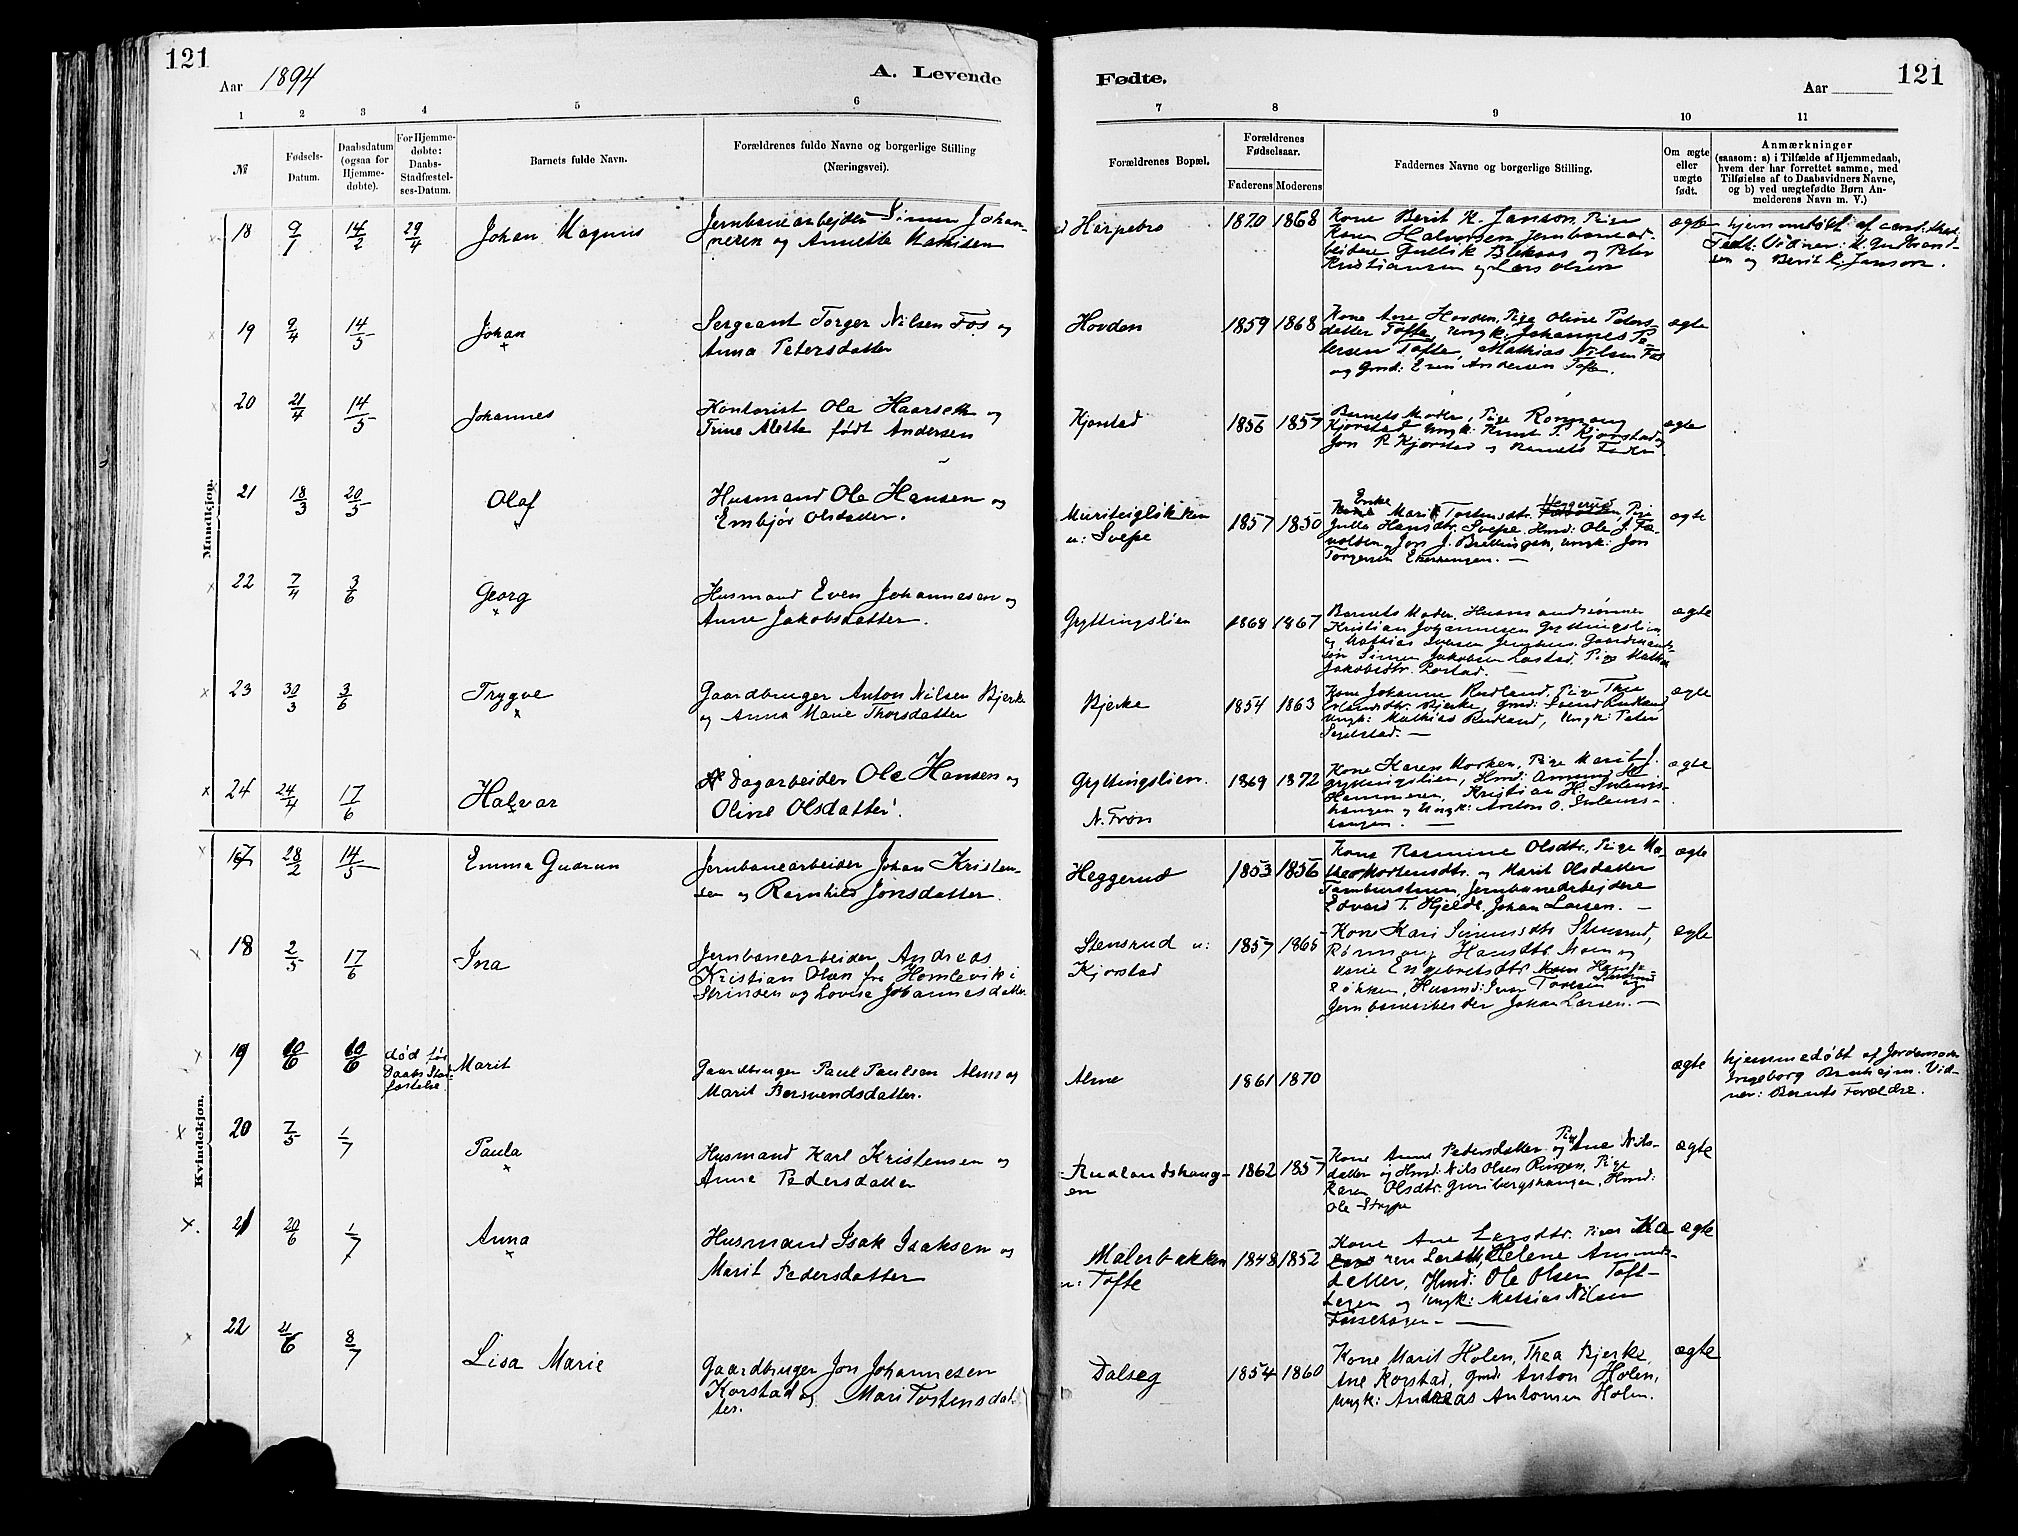 121
Aar 1894
A. Levende
1 2 3 4 5 6
№
Fødsels-Datum.
Daabsdatum (ogsaa for Hjemmedøbte).
For Hjemmedøbte: Daabs-Stadfæstelses-Datum.
Barnets fulde Navn.
Forældrenes fulde Navne og borgerlige Stilling (Næringsvei).
Mandkjøn.
18 9/1 14/2 29/4 Johan Magnus
Jernbanearbejder Simen Johannesen og Annette
19 9/4 14/5 Johan
Sergeant Torger Nilsen Fos og
Anna Petersdatter
20 21/4 14/5 Johannes
Kontorist Ole Haarseth og
Trine Aletta født Andersen
21 18/3 20/5 Olaf
Husmand Ole Hansen og
Embjør Olsdatter.
22 7/4 3/6 Georg
Husmand Even Johannesen og
Anne Jakobsdatter.
23 30/3 3/6 Trygve
Gaardbruger Anton Nilsen Bjerke
og Anna Marie Thorsdatter
24 24/4 17/6 Halvor
Dagarbeider Ole Hansen og
Oline Olsdatter
Kvindekjøn.
17 28/2 14/5 Emma Gudrun
Jernbanearbeider Johan Kristensen og Ragnhild Jonsdatter.
18 2/5 17/6 Ina
Jernbanearbeider Andreas
Kristian Olsen fra Homlevik i
Strinden og Lovise Johannesdatter
19 10/6 10/6 død før Daabs Stadfæstelse Marit
Gaardbruger Paul Paulsen Alme og
Marit Bersvendsdatter.
20 7/5 1/7 Paula
Husmand Karl Kristensen og
Anne Pedersdatter
21 20/6 1/7 Anna
Husmand Isak Isaksen og
Marit Pedersdatter
22 21/6 8/7 Lisa Marie
Gaardbruger Jon Johannesen
Korstad og Mari Tostensdatter.
Fødte.
Aar
121
7 8 9 10 11
Forældrenes Bopæl.
Forældrenes Fødselsaar.
Faderens Moderens
Faddernes Navne og borgerlige Stilling.
Om ægte eller uægte født.
Anmærkninger
(saasom: a) i Tilfælde af Hjemmedaab,
hvem der har forrettet samme, med
Tilføielse af to Daabsvidners Navne,
og b) ved uægtefødte Børn Anmelderens Navn m. V.)
Harpebro 1870 1868
Kone Berit K. Janson, Pige
Halvorsen, Jernbanearbeidere Gullik og Peter
Kristiansen og Lars Olsen
ægte
hjemmedøbt af
Vidner: og Berit K. Janson.
Hovden 1859 1868
Kone Ane Hovden, Pige Oline Petersdatter Tofte, Ungk: Johannes Petersen Tofte, Mathias Nilsen Fos
og Gmd: Even Andersen Tofte.
ægte
Kjorstad 1856 1857
Barnets Moder, Pige Rønnaug
Kjorstad, Ungk: Knut P. Kjorstad,
Jon P. Kjorstad og Barnets Fader
ægte
Muriteigløkken
u: Svepe
1857 1850
Enke Marit Tostensdtr. Heggerud, Pige
Julla Hansdtr. Svepe, Hmd: Ole J.
Jon J. Ungk: Jon
Torgersen
ægte
Gryttingslien 1868 1867
Barnets Moder, Husmandssønner
Kristian Johannesen Gryttingslien
og Mathias Gaardmandssøn Simen Jakobsen Lostad, Pige
Jakobsdtr. Lostad.
ægte
Bjerke 1854 1863
Kone Johanne Rudland, Pige Thea
Erlandsdtr. Bjerke, Gmd: Svend Rudland,
Ungk: Mathias Rudland, Ungk: Peter
ægte
Gryttingslien.
N. Fron
1869 1872
Kone Karen Morken, Pige Marit J.
Gryttingslien, Hmd: Amund H.
Hammeren, Kristian H.
og Ungk: Anton O.
ægte
Heggerud 1853 1856
Kone Rasmine Olsdtr., Pige Mathea Mortensdtr. og Marit Olsdatter
Jernbanearbejdere
Edvard T. Hjelde, Johan Larsen.
ægte
Stensrud u:
Kjorstad
1857 1865
Kone Kari Simensdtr. Stensrud,
Rønnaug Hansdtr. Moen og
Marie Engebretsdtr.
Husmd: Iver Toresen og
Jernbanearbeider Johan Larsen.
ægte
Alme 1861 1870
ægte
hjemmedøbt af Jordemoder
Ingeborg Bruheim. Vidner: Barnets Forældre.
Rudlandshaugen 1862 1857
Kone Anne Pedersdatter og Pige Ane Nilsdatter og Hmd: Nils Olsen Pige
Karen Olsdtr. Guribergshaugen, Hmd:
Ole
ægte
Malerbakken
u: Tofte
1848 1852
Kone Ane Larsdtr. Piger Karen Helene Amundsdatter, Hmd: Ole Olsen
og Ungk: Mathias Nilsen
ægte
Dalseg 1854 1860
Kone Marit Holen, Thea Bjerke,
Ane Korstad, Gmd: Anton Holen,
Ungk: Andreas Antonsen Holen.
ægte